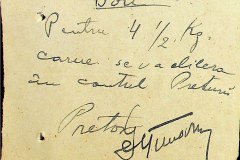 Bon
Pentru 4 ½ Kg.
carne se va elibera
în contul Preturii
Pretor